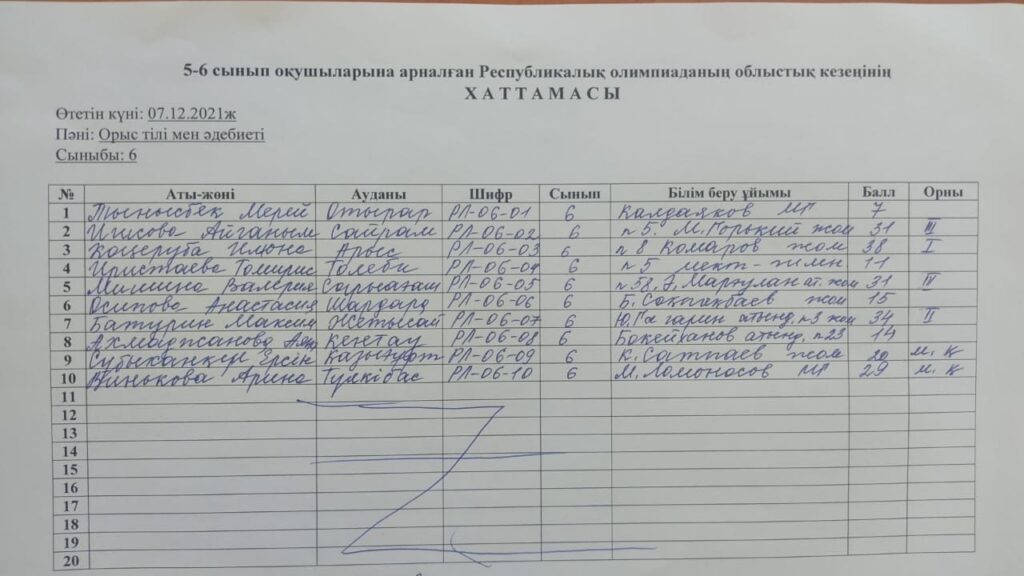 5-6 сынып оқушыларына арналған Республикалық олимпиаданың облыстық кезеңінің
ХАТТАМАСЫ
Өтетін күні: 07.12.2021ж
Пәні: Орыс тілі мен әдебиеті
Сыныбы: 6
№ Аты-жөні Ауданы Шифр Сынып Білім беру ұйымы Балл Орны
1 Тынысбек Мерей Отырар РЛ-06-01 6 Калдаяков МГ 7
2 Игисова Айганым Сайрам РЛ-06-02 6 п 5. М.Горький жом 31 III
3 Коцеруба Илона Арыс РЛ-06-03 6 п 8 Комаров жом 38 I
4 Иристаева Томирис Толеби РЛ-06-04 6 п 5 мект-гимн 11
5 Милина Валерия Сарыагаш РЛ-06-05 6 п 52 Ә. Маргулан ат. жом 31 III
6 Осипова Анастасия Шардара РЛ-06-06 6 Б. Сокпакбаев жом 15
7 Батурин Максим Жетысай РЛ-06-07 6 Ю.Гагарин атынд. п3 жом 34 II
8 Ахмаджанова Кентау РЛ-06-08 6 Бокейханов атынд. п23 14
9 Ерсін Казыгурт РЛ-06-09 6 К. Сатпаев жом м. қ
10 Арина Түлкібас РЛ-06-10 6 М. Ломоносов МГ 29 м. қ
11
12
13
14
15
16
17
18
19
20